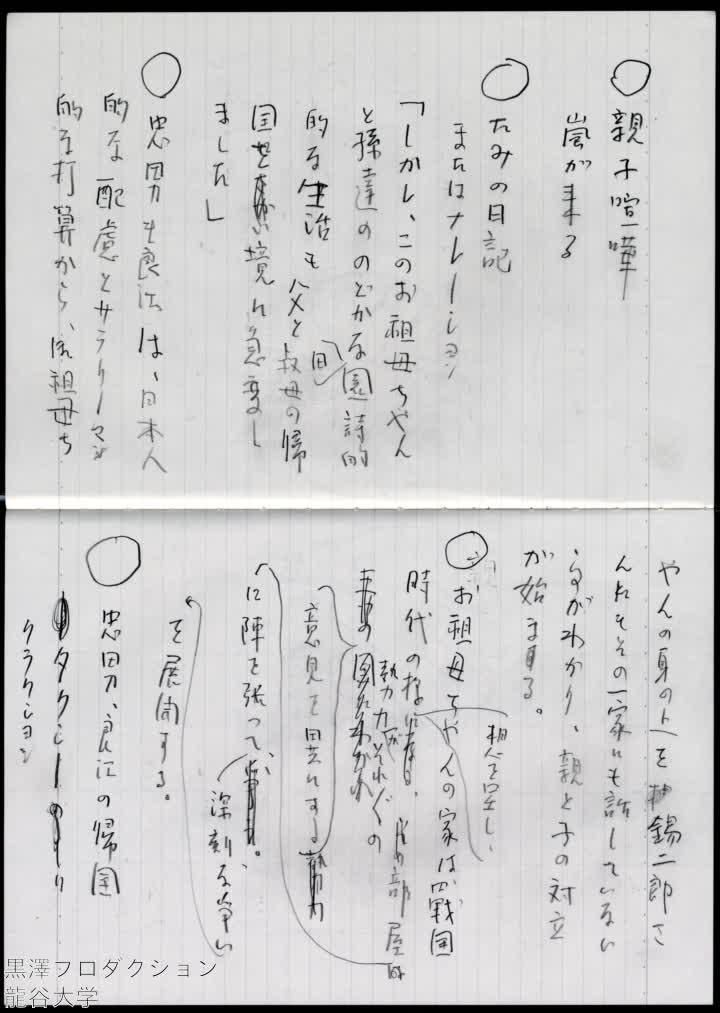 ○ 親子喧嘩
嵐が来る
○ たみの日記
またはナレーション
「しかし、このお祖母ちゃん
と孫達ののどかな田園詩的
的な生活も父と叔母の帰
国を境に急変し
ました」
○ 忠男も良江は、日本人
的な配慮とサラリーマン
的な打算から、お祖母ち
ゃんの身の上を錫二郎さ
んにもその一家にも話していない
事がわかり、親と子の対立
が始まる。
○ お祖母ちゃんの家は戦国
時代の様相を呈し、
勢力がそれぞれの部屋
意見を異にする勢力
に陣を張って、
深刻な争い
を展開する。
○ 忠男、良江の帰国
タクシーの
クラクション
黒澤プロダクション
龍谷大学